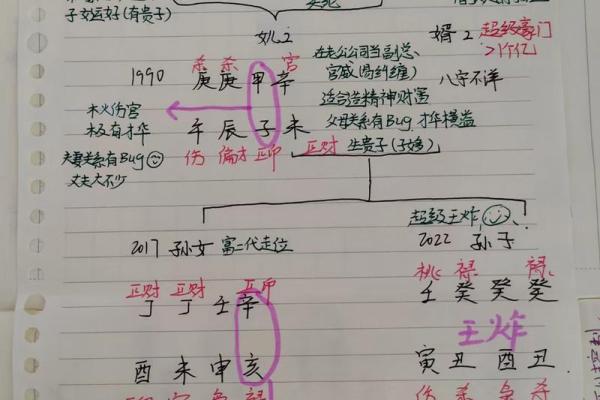 子女运好(有贵子)
姚2
婿2 超级豪门
>1个亿
杀 杀 宫
1990 庚 庚 甲 辛
在老公公司当副总、
官威(易纠缠)
八字不详
木火伤官
极有才华
适合造精神财富
父母关系有Bug,才华横溢
午 辰 子 未
伤 偏才 正印 正财 生贵子(子多)
夫妻关系有Bug
丈夫大不少
超级王炸
2017 孙女 富二代走位
2022 孙子
正财 正财 正印
丁 丁 壬 辛
桃 禄 禄
壬 癸 癸 癸
王炸
酉 未 申 亥
寅 丑 酉 丑
伤 杀 枭 杀